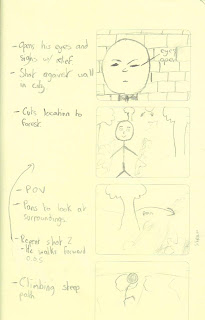 - Opens his eyes and
sighs w/ relief
- Shot against wall
in city
eyes
open
- Cuts location to
forest
- POV
- Pans to look at
surroundings
- Repeat shot 2
- He walks forward
O.O.S
- Climbing steep
path